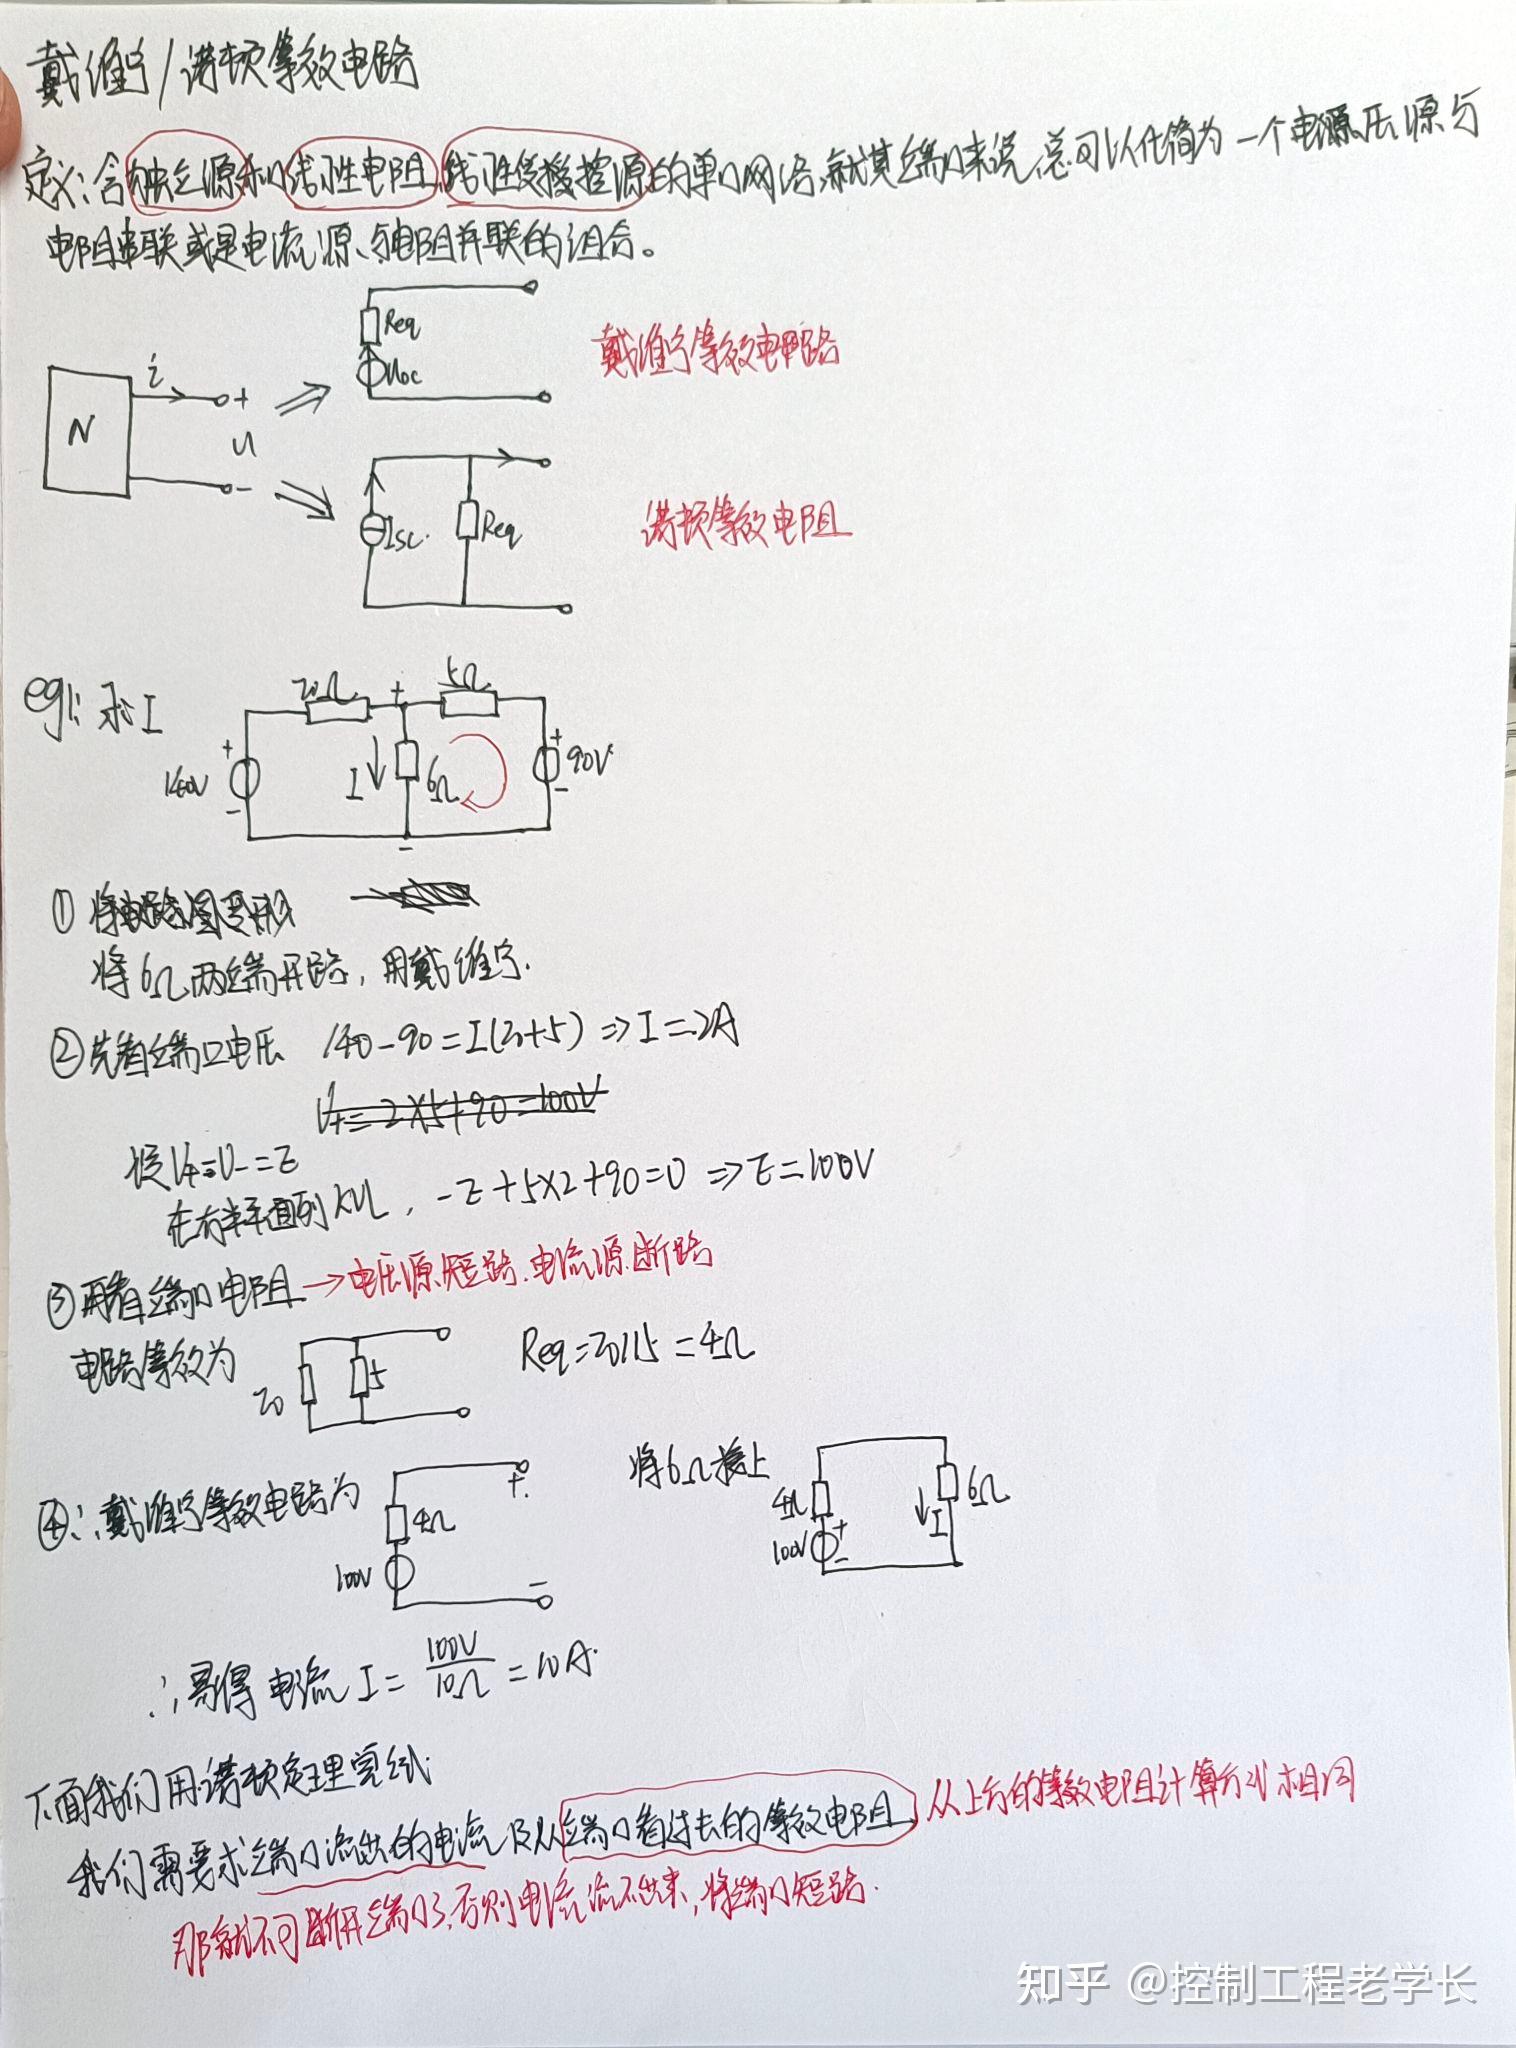 戴维宁/诺顿等效电路
定义:含独立源和线性电阻、线性受控源的单口网络,就其端口来说,总可以化简为一个电压源与
电阻串联或是电流源与电阻并联的组合。
Req
Uoc
戴维宁等效电路
i
+
N
u
-
Isc
Req
诺顿等效电阻
eg1: 求I
20Ω
+
5Ω
+
140V
-
I
6Ω
+
90V
-
-
① 将电路图变形
将6Ω两端开路,用戴维宁.
②先看端口电压 140-90=I(20+5) => I=2A
U+=2×5+90=100V
设U+=U-=E
在右半平面列KVL, -E+5×2+90=0 => E=100V
③再看端口电阻→电压源短路.电流源断路
电路等效为
20
5
Req=20//5=4Ω
④∴戴维宁等效电路为
4Ω
100V
+
-
将6Ω接上
4Ω
100V
+
-
I
6Ω
∴易得电流 I = 100V/10Ω = 10A.
下面我们用诺顿定理尝试
我们需要求端口流出的电流及从端口看过去的等效电阻 从上后的等效电阻计算方式相同
那就不可断开端口了,否则电流流不出来,将端口短路.
知乎 @控制工程老学长